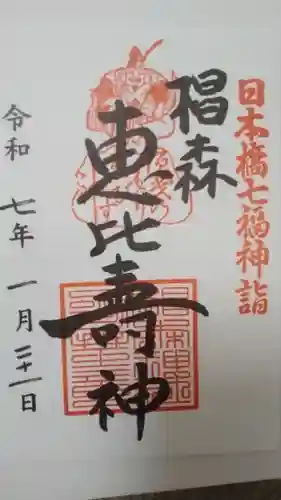 日本橋七福神詣
椙森
恵比寿神
令和七年一月二十一日